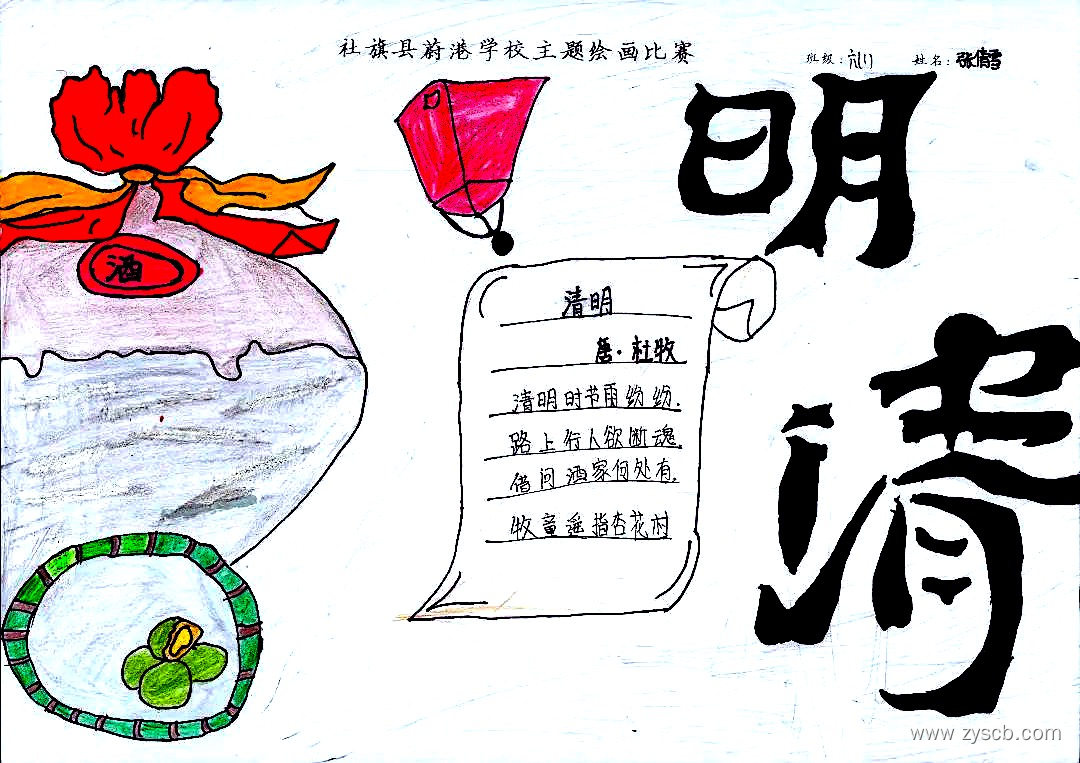 社旗县蔚港学校主题绘画比赛
班级: 六(1) 姓名: 张倩雪
明
清
酒
清明
唐·杜牧
清明时节雨纷纷.
路上行人欲断魂.
借问酒家何处有.
牧童遥指杏花村
www.zyscb.com